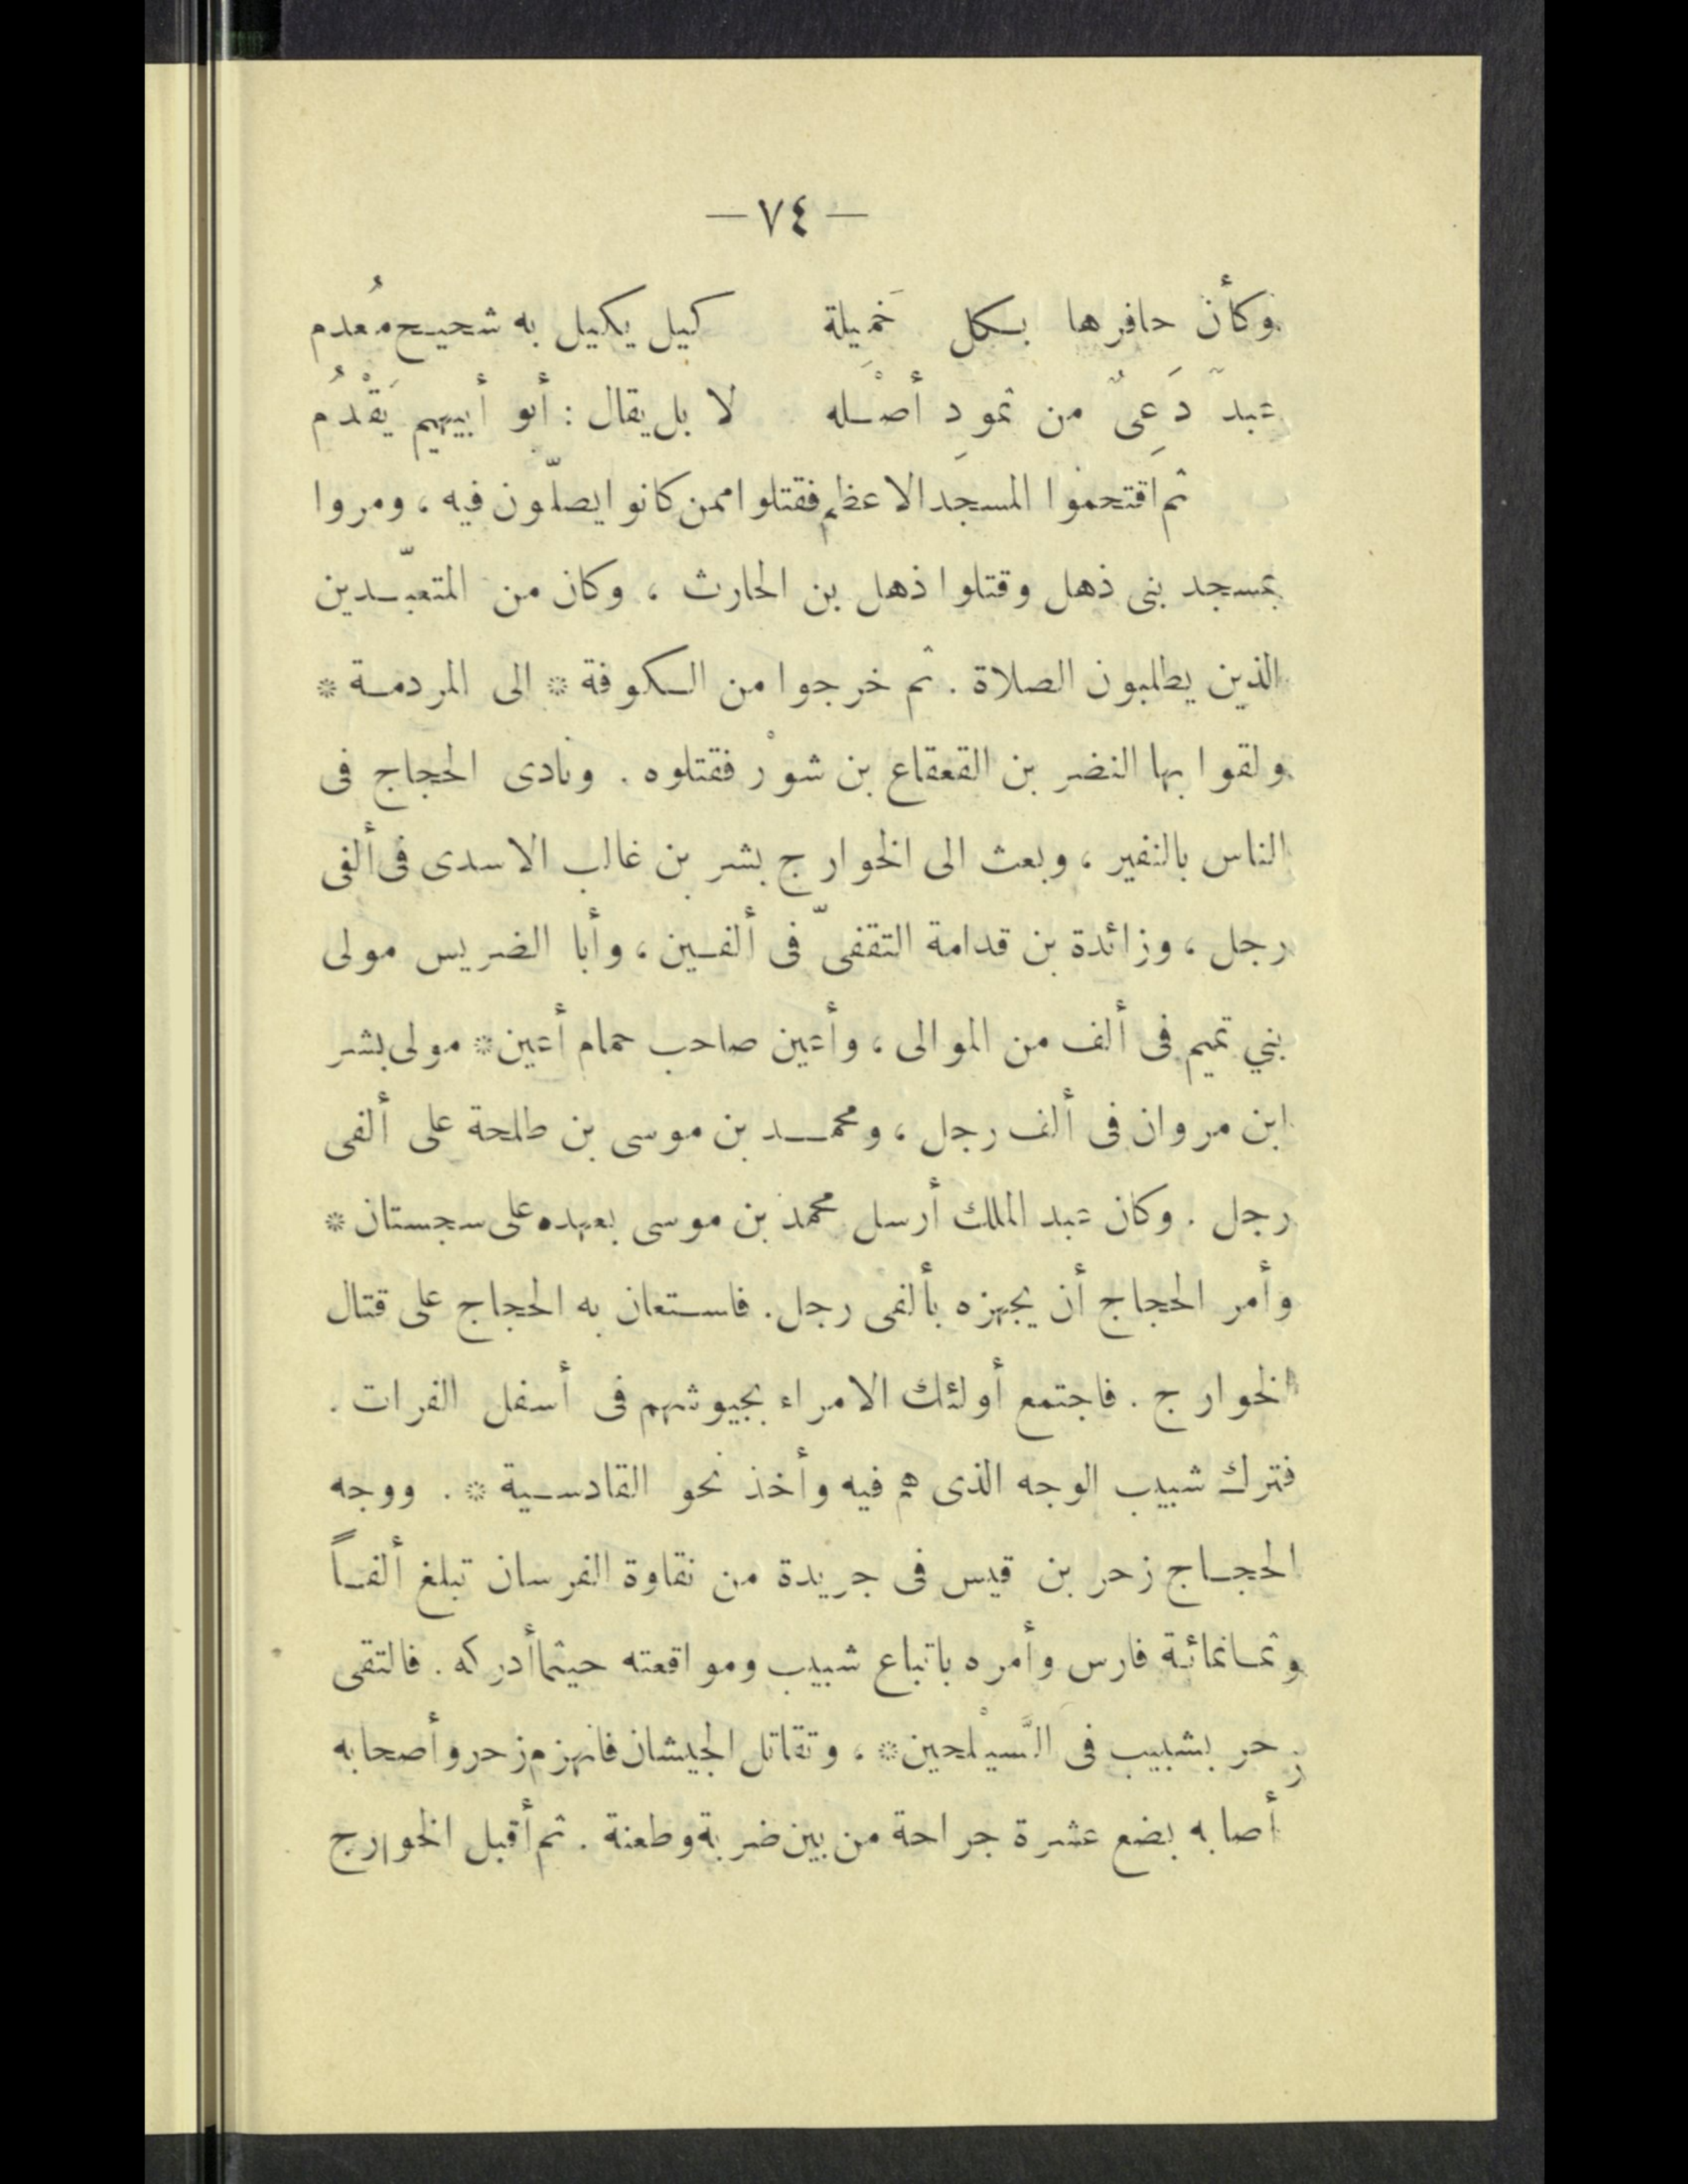 — ٧٤ —
وكأن حافرها بكل خَمِيلة كيل يكيل به شحيح مُعدم
عبدٌ دَعِىٌّ من ثمودِ أصْله لا بل يقال : أبو أبيهم يَقْدُم
ثم اقتحموا المسجد الاعظم فقتلوا ممن كانوا يصلّون فيه ، ومروا
بمسجد بنى ذهل وقتلوا ذهل بن الحارث ، وكان من المتعبّدين
الذين يطلبون الصلاة . ثم خرجوا من الكوفة * الى المردمة *
ولقوا بها النضر بن القعقاع بن شوْر فقتلوه . ونادى الحجاج فى
الناس بالنفير ، وبعث الى الخوارج بشر بن غالب الاسدى فى ألفى
رجل ، وزائدة بن قدامة الثقفىّ فى ألفين ، وأبا الضريس مولى
بني تميم فى ألف من الموالى ، وأعين صاحب حمام أعين * مولى بشر
ابن مروان فى ألف رجل ، ومحمد بن موسى بن طلحة على ألفى
رجل . وكان عبد الملك أرسل محمد بن موسى بعهده على سجستان *
وأمر الحجاج أن يجهزه بألفى رجل . فاستعان به الحجاج على قتال
الخوارج . فاجتمع أولئك الامراء بجيوشهم فى أسفل الفرات .
فترك شبيب الوجه الذى هم فيه وأخذ نحو القادسية * . ووجه
الحجاج زحر بن قيس فى جريدة من نقاوة الفرسان تبلغ ألفاً
وثمانمائة فارس وأمره باتباع شبيب ومواقعته حيثما أدركه . فالتقى
زحر بشبيب فى السَّيْلحين * ، وتقاتل الجيشان فانهزم زحر وأصحابه
أصابه بضع عشرة جراحة من بين ضربة وطعنة . ثم أقبل الخوارج